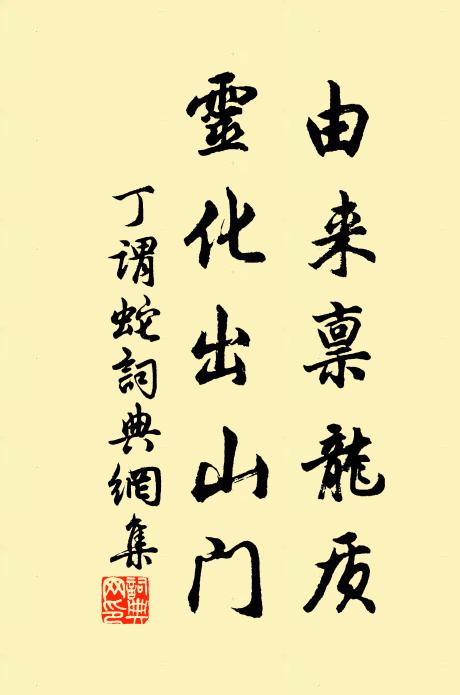 由来禀龍质
靈化出山门
丁谓蛇詞典網集
詞典网印